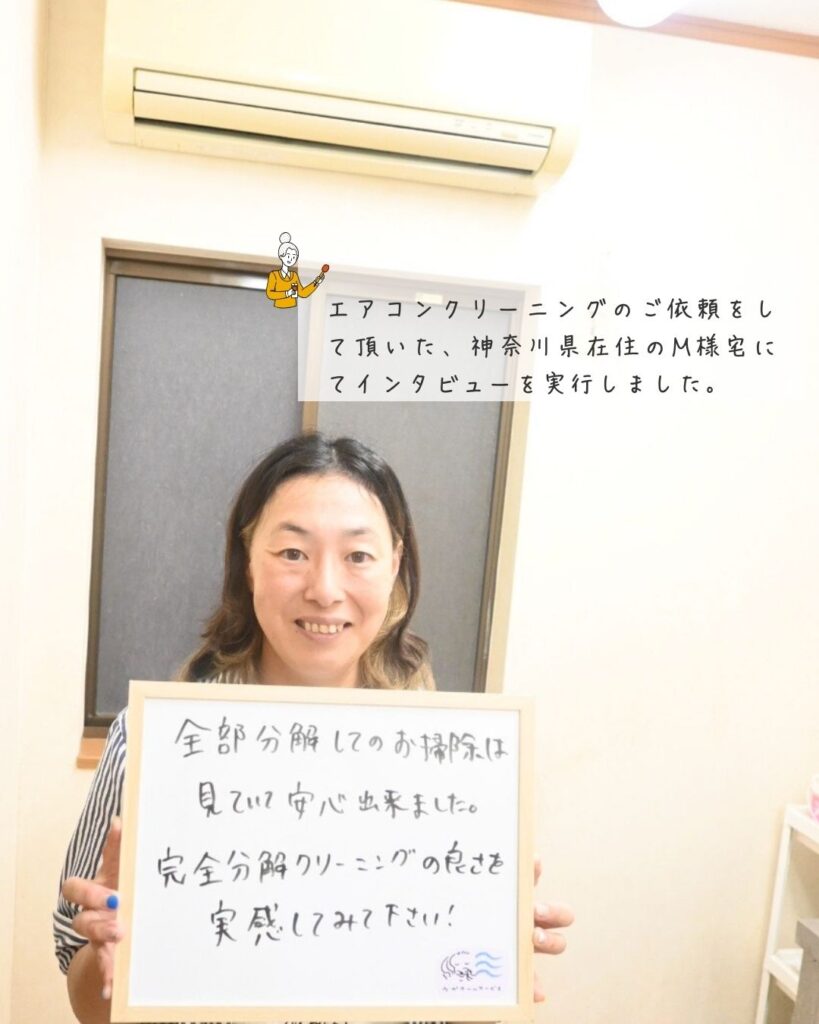 エアコンクリーニングのご依頼をし
て頂いた、神奈川県在住のM様宅に
てインタビューを実行しました。
全部分解してのお掃除は
見ていて安心出来ました。
完全分解クリーニングの良さを
実感してみて下さい！